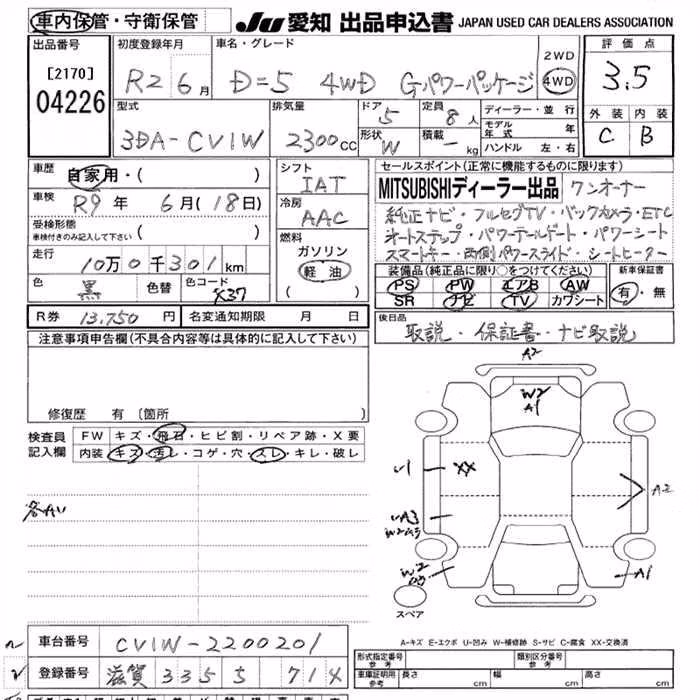 車内保管・守衛保管 JU 愛知 出品申込書 JAPAN USED CAR DEALERS ASSOCIATION
出品番号 初度登録年月 車名・グレード 2WD 評価点
[2170] R2 6月 D=5 4WD Gパワーパッケージ 4WD 3.5
04226
型式 排気量 ドア 定員 ディーラー・並行 外装 内装
3DA-CV1W 2300cc 5 8人 モデル年式 年 C B
形状 W 積載 - kg ハンドル 左・右
車歴 自家用・( ) シフト セールスポイント(正常に機能するものに限ります)
IAT MITSUBISHIディーラー出品 ワンオーナー
車検 R9年 6月(18日) 冷房 純正ナビ・フルセグTV・バックカメラ・ETC
受検形態 AAC オートステップ・パワーテールゲート・パワーシート
車検付きのみ記入して下さい ( ) 燃料 スマートキー・両側パワースライド・シートヒーター
走行 10万0千301km ガソリン 装備品(純正品に限り○をつけてください) 新車保証書
軽油 PS PW エアB AW 有・無
色 黒 色替 色コード X37 ( ) SR ナビ TV カワシート
R券 13,750円 名変通知期限 月 日 後日品
取説・保証書・ナビ取説
注意事項申告欄(不具合内容等は具体的に記入して下さい)
A2
W2
A1
修復歴 有 [箇所 ]
検査員 FW キズ・飛石・ヒビ割・リペア跡・X要
記入欄 内装 キズ・汚レ・コゲ・穴・スレ・キレ・破レ
U1 XX A2
各AU
A3
W2
W2 A1
スペア
A-キズ E-エクボ U-凹み W-補修跡 S-サビ C-腐食 XX-交換済
車台番号 CV1W-2200201
形式指定番号 参考 類別区分番号 参考
登録番号 滋賀 335 す 714
車庫証明用 参考 長さ cm 幅 cm 高さ cm